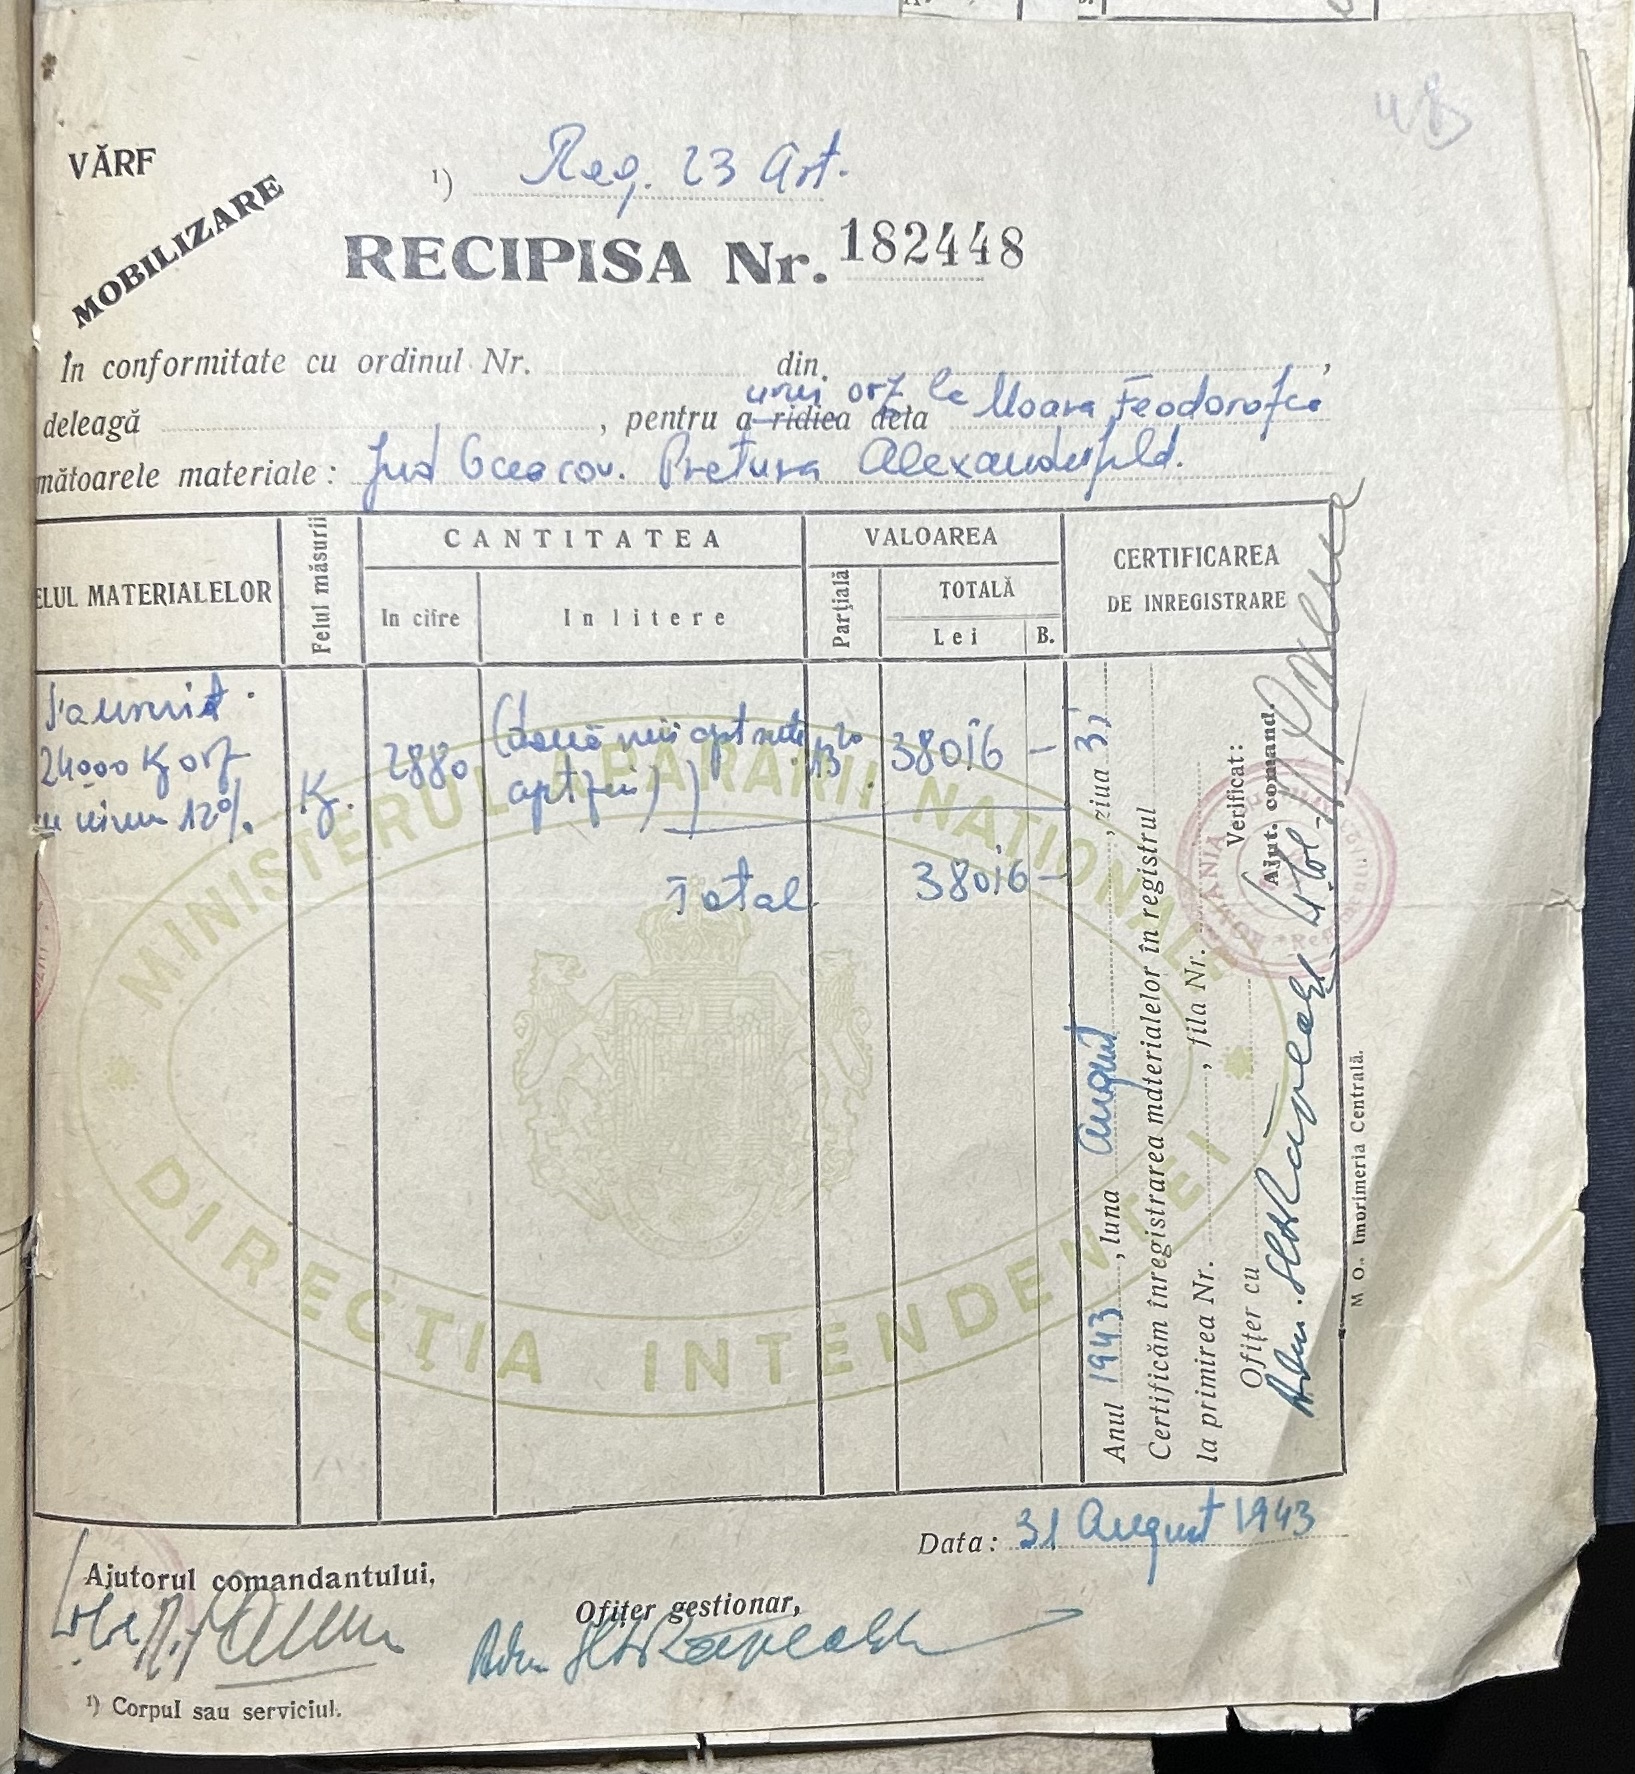 VĂRF
MOBILIZARE
¹) Reg. 23 Art.
RECIPISA Nr. 182448
In conformitate cu ordinul Nr. din ,
deleagă , pentru a ridica dela
orz la Moara Feodorofca
mătoarele materiale: Jud Oceacov. Pretura Alexanderfeld.
ELUL MATERIALELOR
Felul măsurii
CANTITATEA
In cifre
In litere
VALOAREA
Parțială
TOTALĂ
Lei
B.
CERTIFICAREA
DE INREGISTRARE
24000 Kg orz
12%
Kg.
2880
(două mii opt sute
optzeci)
13 20
38016 —
Total
38016 —
Anul 1943, luna August, ziua 31
Certificăm înregistrarea materialelor în registrul
la primirea Nr. , fila Nr.
Ofițer cu
Verificat:
Ajut. comand.
ROMANIA
M. O., Imprimeria Centrală.
MINISTERUL APĂRĂRII NAȚIONALE
DIRECȚIA INTENDENȚEI
Data: 31 August 1943
Ajutorul comandantului,
Ofițer gestionar,
¹) Corpul sau serviciul.